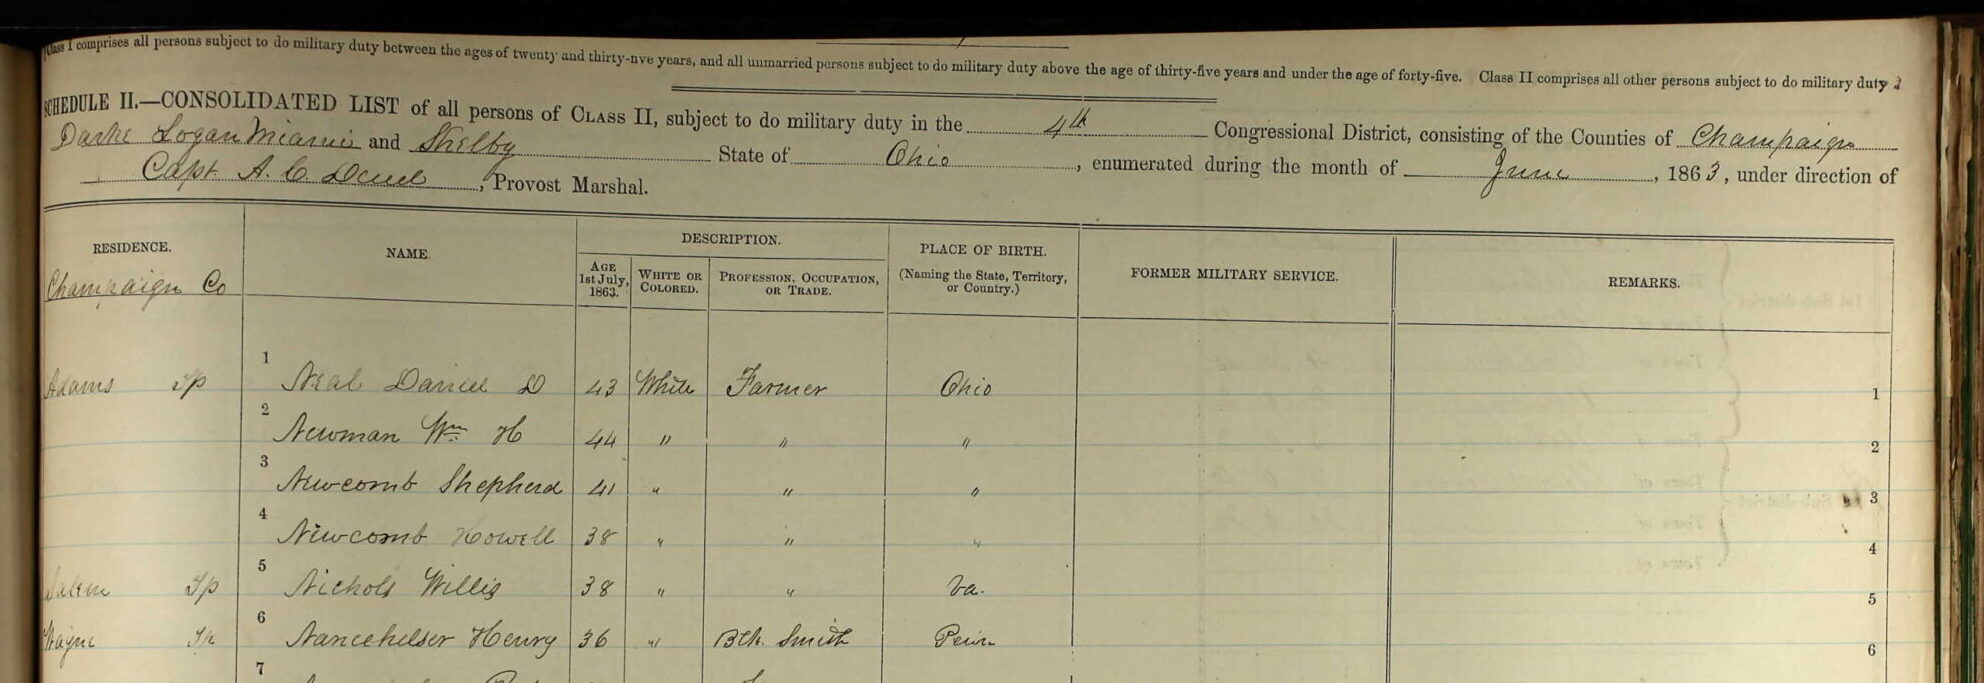 Class I comprises all persons subject to do military duty between the ages of twenty and thirty-five years, and all unmarried persons subject to do military duty above the age of thirty-five years and under the age of forty-five. Class II comprises all other persons subject to do military duty
SCHEDULE II.—CONSOLIDATED LIST of all persons of CLASS II, subject to do military duty in the 4th Congressional District, consisting of the Counties of Champaign
Darke Logan Miami and Shelby State of Ohio, enumerated during the month of June, 1863, under direction of
Capt A. C. Deuel, Provost Marshal.
RESIDENCE. NAME. DESCRIPTION. PLACE OF BIRTH. FORMER MILITARY SERVICE. REMARKS.
AGE 1st July, 1863. WHITE OR COLORED. PROFESSION, OCCUPATION, OR TRADE. (Naming the State, Territory, or Country.)
Champaign Co
Adams Tp 1 Neal Daniel D 43 White Farmer Ohio 1
2 Newman Wm H 44 " " " 2
3 Newcomb Shepherd 41 " " " 3
4 Newcomb Howell 38 " " " 4
Salem Tp 5 Nichols Willis 38 " " Va. 5
Wayne Tp 6 Nancehelser Henry 36 " Blk. Smith Penn 6
7